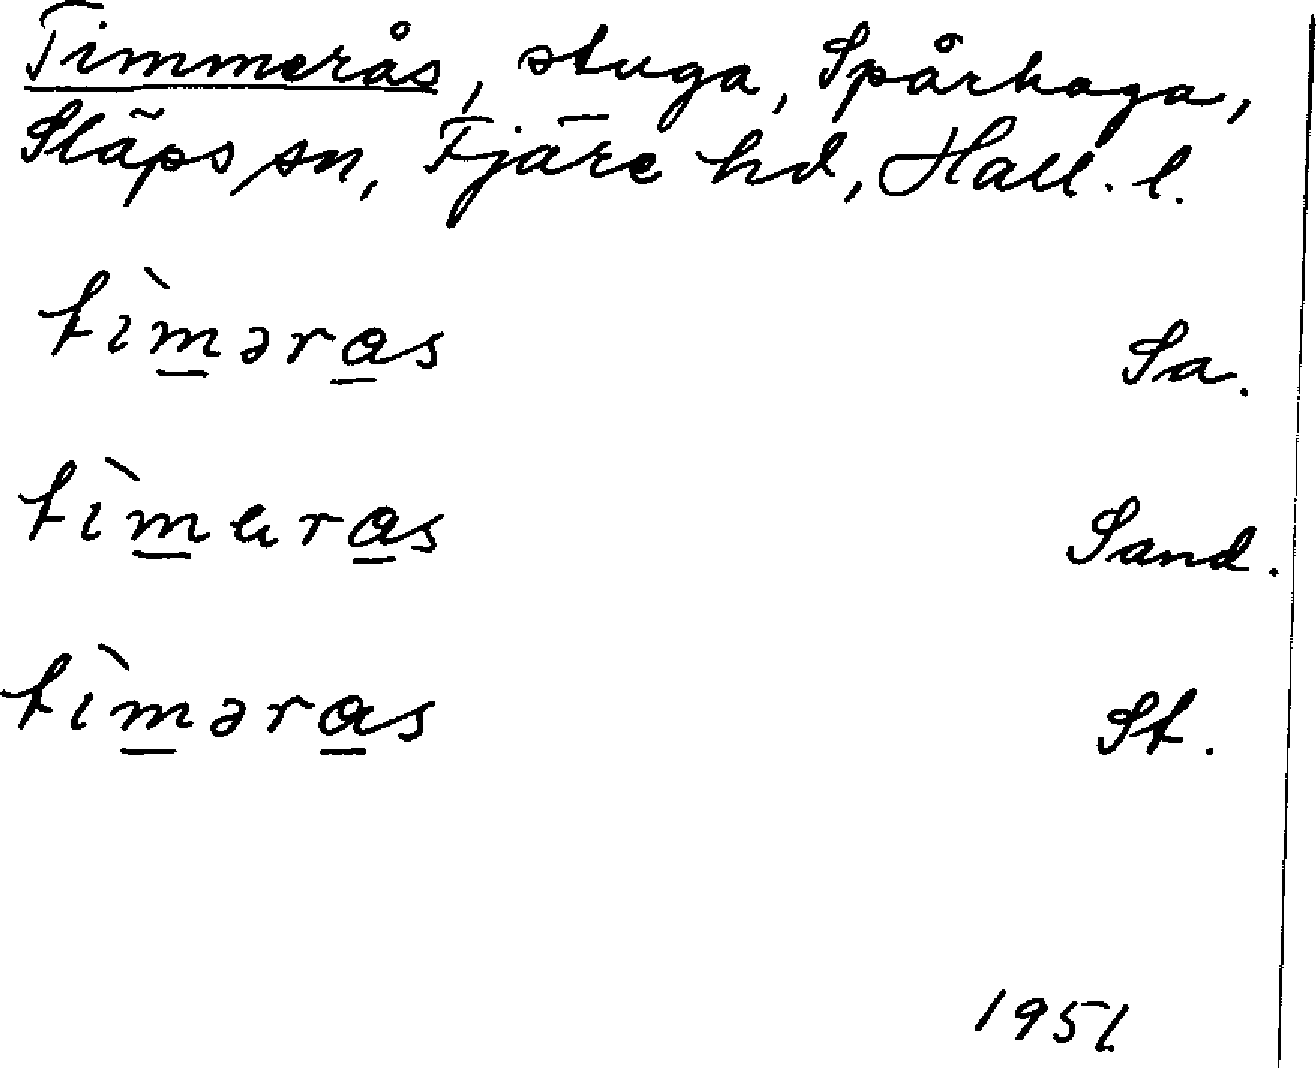 Timmerås, stuga, Spårhaga,
Släps sn, Fjäre hd, Hall. l.
tìməras Sa.
tìmɵras Sand.
tìməras St.
1951.